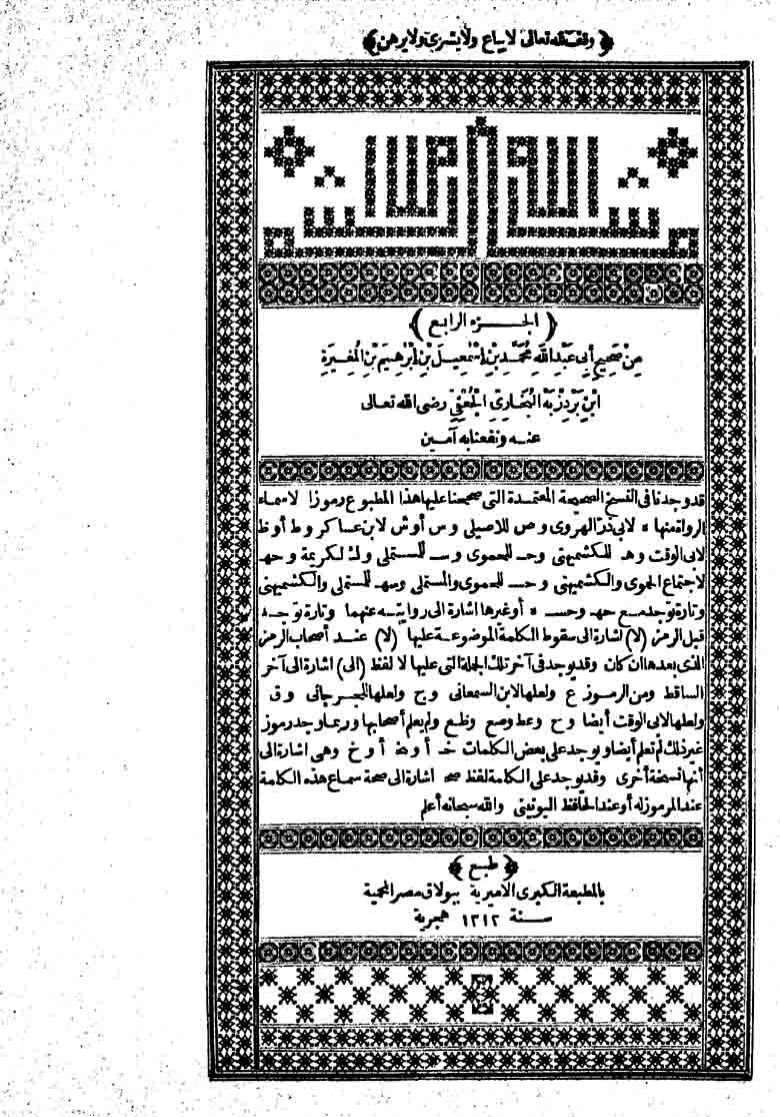 ﴿ وقف لله تعالى لا يباع ولا يشترى ولا يرهن ﴾
﴿ الجــزء الرابع ﴾
مِنْ صَحِيحِ أَبِي عَبْدِ اللهِ مُحَمَّدِ بْنِ إسْمٰعِيلَ بْنِ إبْرٰهِيمَ بْنِ المُغِيرَةِ
ابْنِ بَرْدِزْبَهْ البُخَارِيِّ الجُعْفِيِّ رضى الله تعالى
عنه ونفعنا به آمين
قد وجدنا فى النسخ الصحيحة المعتمدة التى صححنا عليها هذا المطبوع رموزا لأسماء
الرواة منها ه لأبى ذر الهروى و ص للاصيلى و س أو ش لابن عساكر و ط أو ظ
لأبى الوقت و هـ للكشميهنى و حـ للحموى و سـ للمستملى و ك لكريمة و حهـ
لاجتماع الحموى والكشميهنى و حسـ للحموى والمستملى و سهـ للمستملى والكشميهنى
وتارة توجد مع حهـ و حسـ ه أو غيرها اشارة الى روايته عنهما وتارة توجد
قبل الرمز (لا) اشارة الى سقوط الكلمة الموضوعة عليها (لا) عند أصحاب الرمز
الذى بعدها ان كان وقد يوجد فى آخر تلك الجملة التى عليها لا لفظ (الى) اشارة الى آخر
الساقط ومن الرموز ع ولعلها لابن السمعانى و ج ولعلها للجرجانى و ق
ولعلها لابى الوقت أيضا و ح و عط و صع و ظع ولم يعلم أصحابها وربما وجد رموز
غير ذلك لم تعلم أيضا ويوجد على بعض الكلمات خـ أو خ وهى اشارة الى
أنها نسخة أخرى وقد يوجد على الكلمة لفظ صح اشارة الى صحة سماع هذه الكلمة
عند المرموز له أو عند الحافظ اليونينى والله سبحانه أعلم
﴿ طبع ﴾
بالمطبعة الكبرى الاميرية ببولاق مصر المحمية
سنة ١٣١٢ هجرية